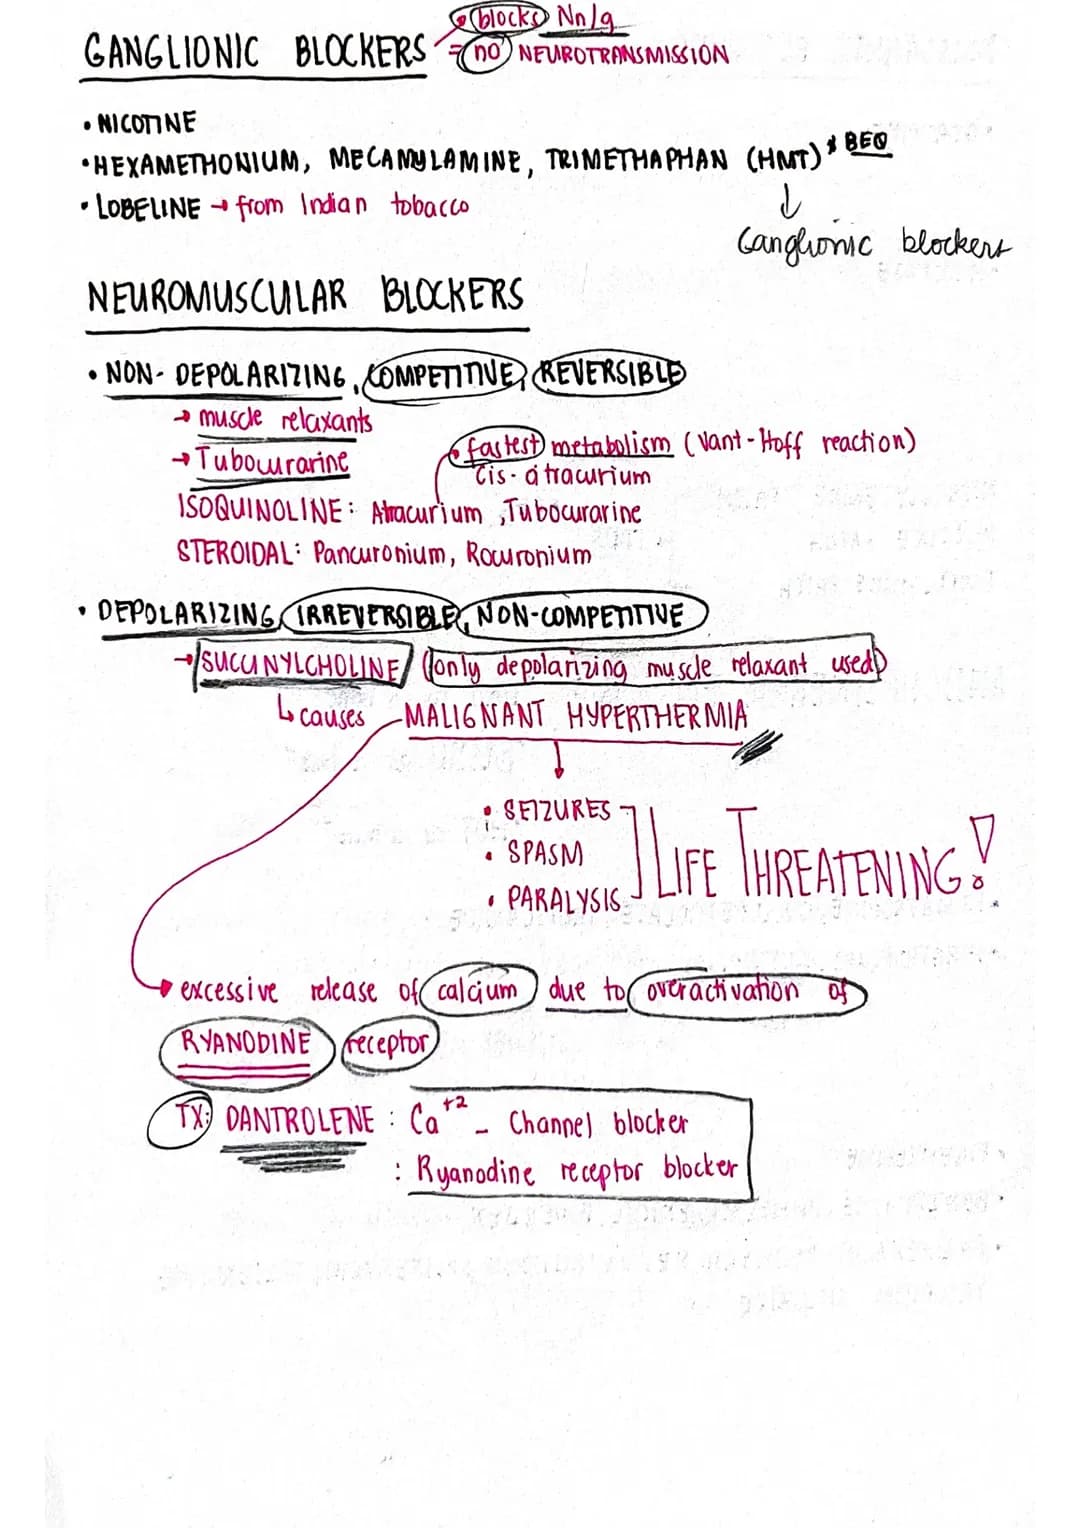 blocks Nn/g
GANGLIONIC BLOCKERS = no NEUROTRANSMISSION
• NICOTINE
• HEXAMETHONIUM, MECAMYLAMINE, TRIMETHAPHAN (HMT) * BEQ
• LOBELINE → from Indian tobacco
↓
Ganglionic blockers
NEUROMUSCULAR BLOCKERS
• NON-DEPOLARIZING, COMPETITIVE, REVERSIBLE
→ muscle relaxants
→ Tubocurarine
fastest metabolism (Vant-Hoff reaction)
Cis-atracurium
ISOQUINOLINE: Atracurium, Tubocurarine
STEROIDAL: Pancuronium, Rocuronium
• DEPOLARIZING, IRREVERSIBLE, NON-COMPETITIVE
→ SUCCINYLCHOLINE (only depolarizing muscle relaxant used)
↳ causes MALIGNANT HYPERTHERMIA
↓
• SEIZURES
• SPASM
• PARALYSIS
LIFE THREATENING!
excessive release of calcium due to overactivation of
RYANODINE receptor
TX: DANTROLENE : Ca+2 - Channel blocker
: Ryanodine receptor blocker